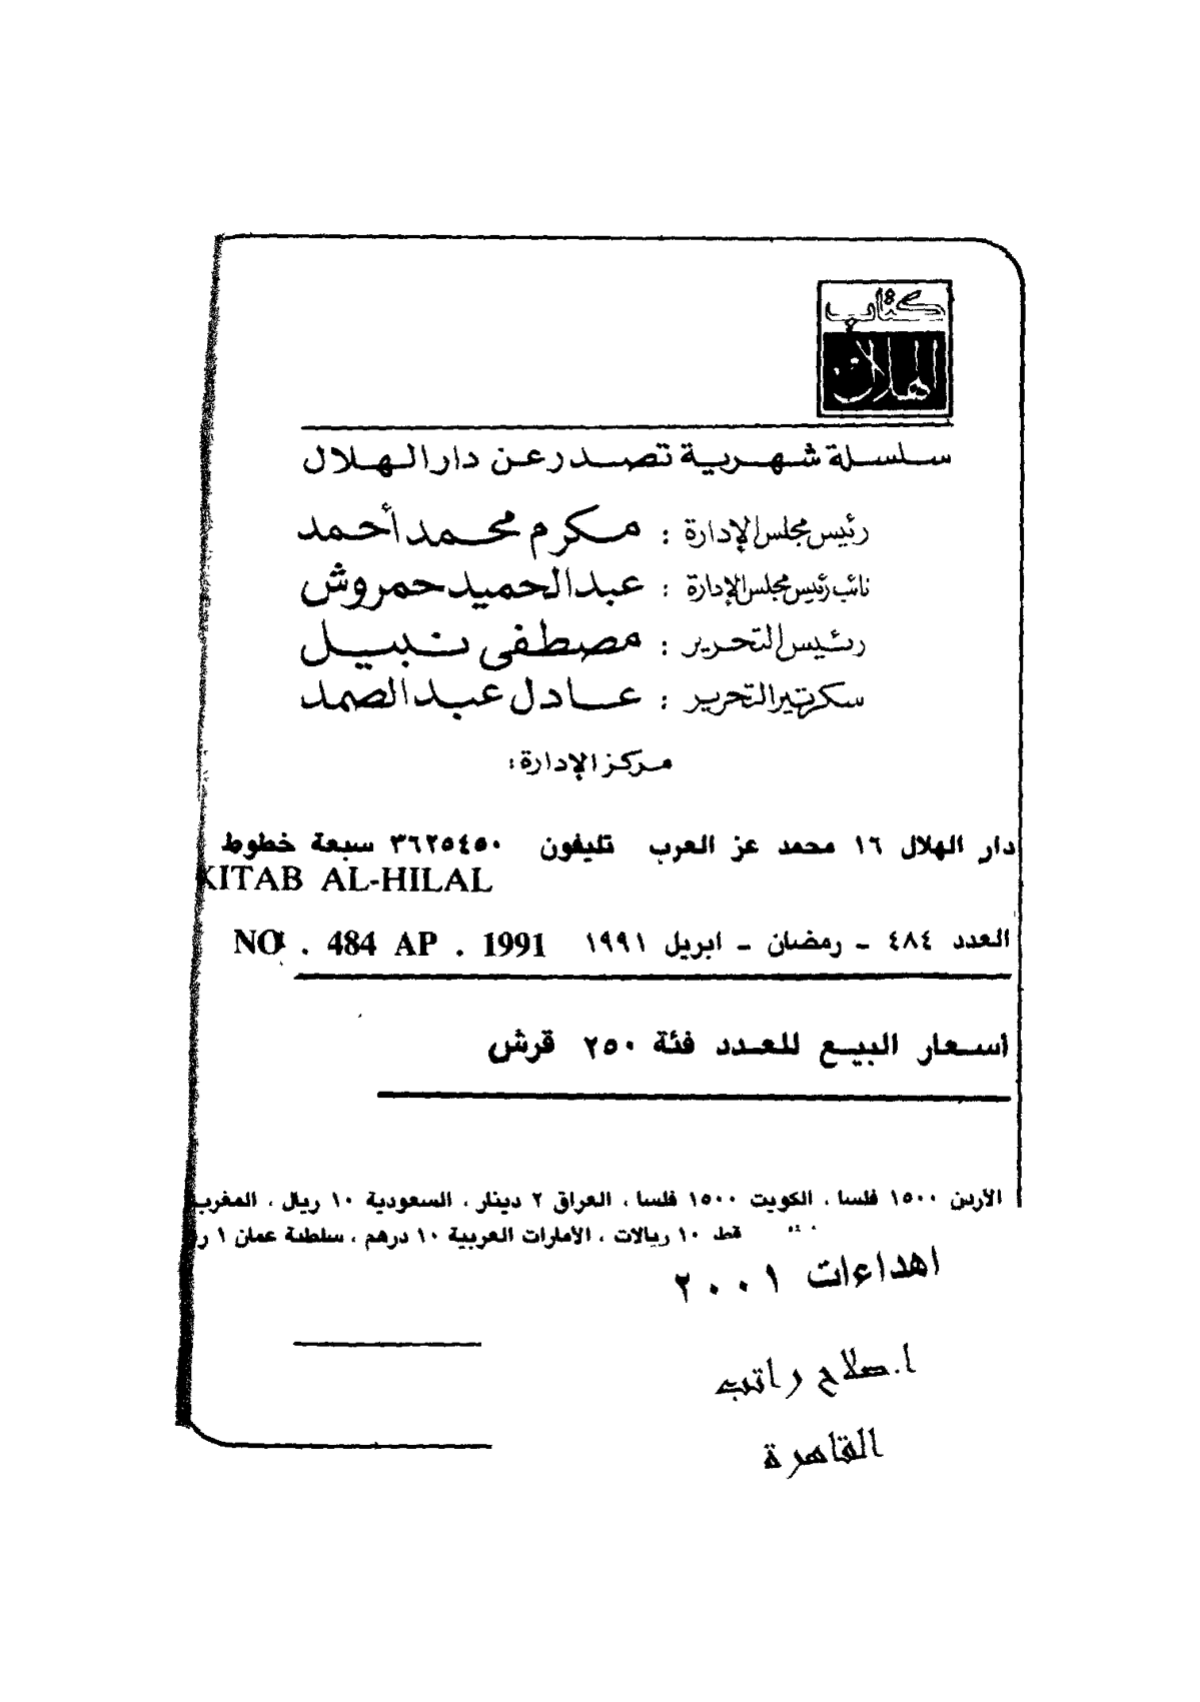 كتاب
الهلال
سلسلة شهرية تصدر عن دار الهلال
رئيس مجلس الإدارة : مكرم محمد أحمد
نائب رئيس مجلس الإدارة : عبد الحميد حمروش
رئيس التحرير : مصطفى نبيل
سكرتير التحرير : عادل عبد الصمد
مركز الإدارة :
دار الهلال ١٦ محمد عز العرب تليفون ٣٦٢٥٤٥٠ سبعة خطوط
KITAB AL-HILAL
العدد ٤٨٤ - رمضان - ابريل ١٩٩١ NO . 484 AP . 1991
أسعار البيع للعدد فئة ٢٥٠ قرش
الأردن ١٥٠٠ فلسا ، الكويت ١٥٠٠ فلسا ، العراق ٢ دينار ، السعودية ١٠ ريال ، المغرب
١٠ ريالات ، الأمارات العربية ١٠ درهم ، سلطنة عمان ١
اهداءات ٢٠٠١
ا. صلاح راتب
القاهرة